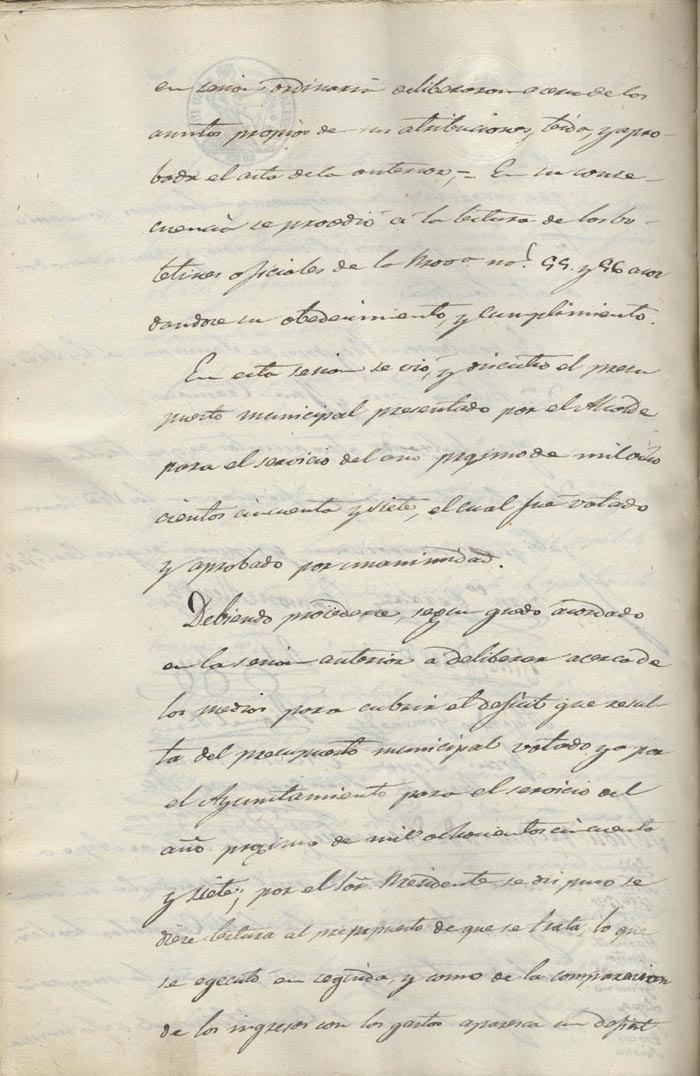 en sesion ordinaria deliberaron acerca de los
asuntos propios de sus atribuciones, leida, y apro-
bada el acta de la anterior,= En su conse-
cuencia se procedió á la lectura de los bo-
letines oficiales de la Prova. nos. 55. y 56 acor
dandose su obedecimiento, y cumplimiento.
En esta sesion se vió, y discutio el presu
puesto municipal presentado por el Alcalde
para el servicio del año proximo de mil ocho
cientos cincuenta y siete, el cual fué votado
y aprobado por unanimidad.
Debiendo procederse, segun quedo acordado
en la sesion anterior a deliberar acerca de
los medios para cubrir el deficit que resul-
ta del presupuesto municipal votado ya por
el Ayuntamiento para el servicio del
año proximo de mil ochocientos cincuenta
y siete; por el Sor. Presidente se dispuso se
diese lectura al presupuesto de que se trata, lo que
se egecutó en seguida, y como de la comparacion
de los ingresos con los gastos aparesca un deficit